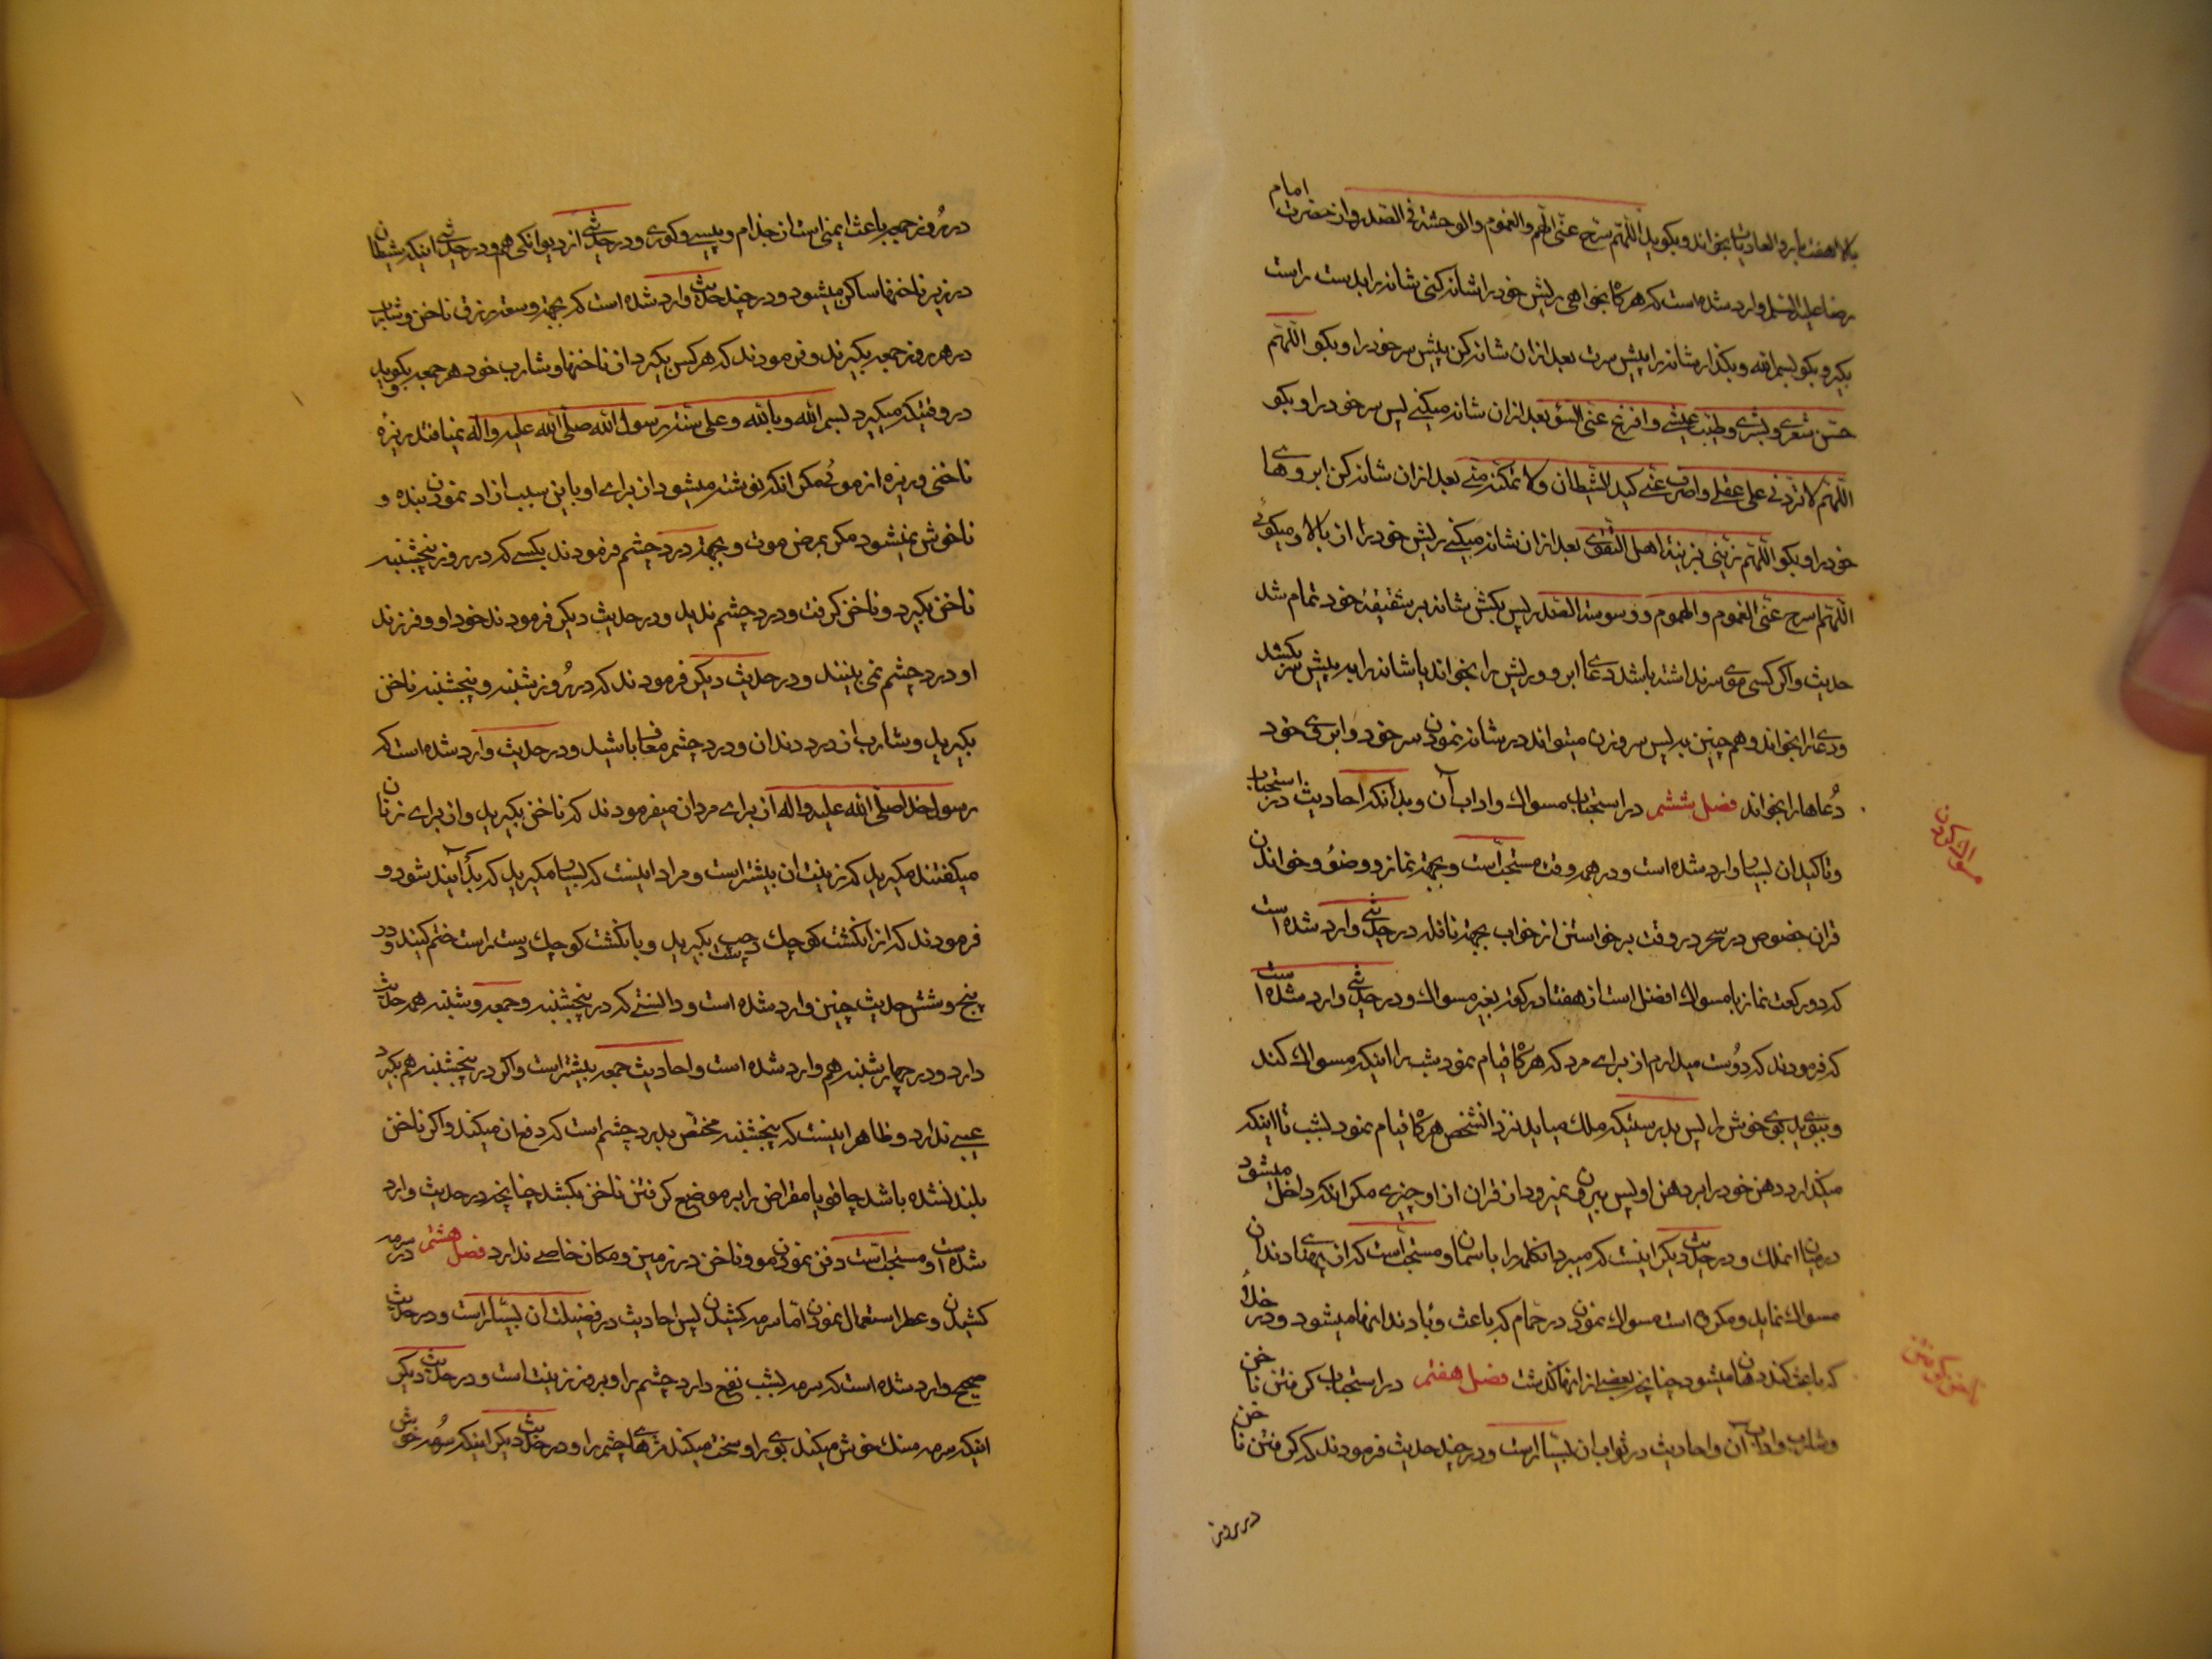 بالا هفت بار و العادیات بخواند و بگوید اللّهمّ سرّح عنّی الهمّ و الغموم و الوحشة فی الصّدر و از حضرت امام
رضا علیه السّلم وارد شده است که هرگاه بخواهی ریش خود را شانه کنی شانه را بدست راست
بگیر و بگو بسم الله و بگذار شانه را پیش سرت بعد ازان شانه کن پیش سر خود را و بگو اللّهمّ
حسّن شعری و بشری و طیّب عیشی و افرج عنّی السّوء بعد ازان شانه میکنی پس سر خود را و بگو
اللّهمّ لا تردّنی علی عقبی و اصرف عنّی کید الشّیطان و لا تمکّنه منّی بعد ازان شانه کن ابروهای
خود را و بگو اللّهمّ زیّنی بزینة اهل التّقوی بعد ازان شانه میکنی ریش خود را از بالا و میگوئی
اللّهمّ سرح عنّی الغموم و الهموم و وسوسة الصّدر پس بکش شانه بر شقیقهٔ خود تمام شد
حدیث و اگر کسی موی سر نداشته باشد دعای ابرو و ریش را بخواند یا شانه را به پیش سر بکشد
و دعا را بخواند و همچنین به پس سر و زن میتواند در شانه نمودن سر خود و ابروی خود
دُعاها را بخواند فصل ششم در استحباب مسواک و اداب آن و بدانکه احادیث در استحباب
و تاکید ان بسیار وارد شده است و در همه وقت مستحبّ است و بجهة نماز و وضؤ و خواندن
قران خصوص در سحر در وقت برخواستن از خواب بجهة نافله در حدیثی وارد شده است
که دو رکعت نماز با مسواک افضل است از هفتاد رکعت بغیر مسواک و در حدیثی وارد شده است
که فرمودند که دوُست میدارم از برای مرد که هرگاه قیام نمود بشب را اینکه مسواک کند
و ببوید بوی خوش را پس بدرستیکه ملک میاید نزد انشخص هرگاه قیام نمود بشب تا اینکه
میگذارد دهن خود را بر دهن او پس بیرون نمیرود از قران از او چیزی مگر انکه داخل میشود
درمیان انملک و در حدیث دیگر اینست که میبرد انکلمه را باسمان و مستحبّ است که از پهنای دندان
مسواک نماید و مکروه است مسواک نمودن در حمّام که باعث وبا دندانها میشود و در خلا
که باعث گند دهان میشود چنانچه بعضی از انها گذشت فصل هفتم در استحباب گرفتن ناخن
و شارب و اداب آن و احادیث در ثواب ان بسیار است و در چند حدیث فرمودند که گرفتن ناخن
در روز
مسواک کردن
ناخن گرفتن
در رُوز جمعه باعث ایمنی است از جذام و پیسی و کوری و در حدیثی از دیوانگی هم و در حدیثی اینکه شیطان
در زیر ناخنها ساکن میشود و در چند حدیث وارد شده است که بجهة وسعت رزق ناخن و شارب
در هر روز جمعه بگیرند و فرمودند که هر کس بگیرد از ناخنها و شارب خود هر جمعه و بگوید
در وقتیکه میگیرد بسم الله و بالله و علی سنّة رسول الله صلّی الله علیه و اله نمیافتد ریزه
ناخنی و ریزه از موئی مگر انکه نوشته میشود ان برای او باین سبب ازاد نمودن بنده و
ناخوش نمیشود مگر بمرض موت و بجهة درد چشم فرمودند بکسی که در روز پنجشنبه
ناخن بگیرد و ناخن گرفت و درد چشم ندید و در حدیث دیگر فرمودند خود او و فرزند
او درد چشم نمی بینند و در حدیث دیگر فرمودند که در رُوز شنبه و پنجشنبه ناخن
بگیرید و شارب از درد دندان و درد چشم معاف باشید و در حدیث وارد شده است که
رسول خدا صلّی الله علیه و اله از برای مردان میفرمودند که ناخن بگیرید و از برای زنان
میگفتند مگیرید که زینت ان بیشتر است و مراد اینست که بسیار مگیرید که بدایند شود و
فرمودند که از انگشت کوچک دست چپ بگیرید و بانگشت کوچک دست راست ختم کنید و در
پنج و شش حدیث چنین وارد شده است و دانستی که در پنجشنبه و جمعه و شنبه همه حدیث
دارد و در چهارشنبه هم وارد شده است و احادیث جمعه بیشتر است و اگر در پنجشنبه هم بگیرد
عیبی ندارد و ظاهر اینست که پنجشنبه مختصّ بدرد چشم است که دفع ان میکند و اگر ناخن
بلند نشده باشد چاقو یا مقراض را بر موضع گرفتن ناخن بکشد چنانچه در حدیث وارد
شده است و مستحبّ است دفن نمودن مو و ناخن در زمین و مکان خاصی ندارد فصل هشتم در سرمه
کشیدن و عطر استعمال نمودن امّا سرمه کشیدن پس احادیث در فضیلت ان بسیار است و در حدیث
صحیح وارد شده است که سرمه بشب نفع دارد چشم را و بروز زینت است و در حدیث دیگر
اینکه سرمه سنک خوش میکند بوی را و سخت میکند مژهای چشم را و در حدیث دیگر اینکه سُرمه خوش